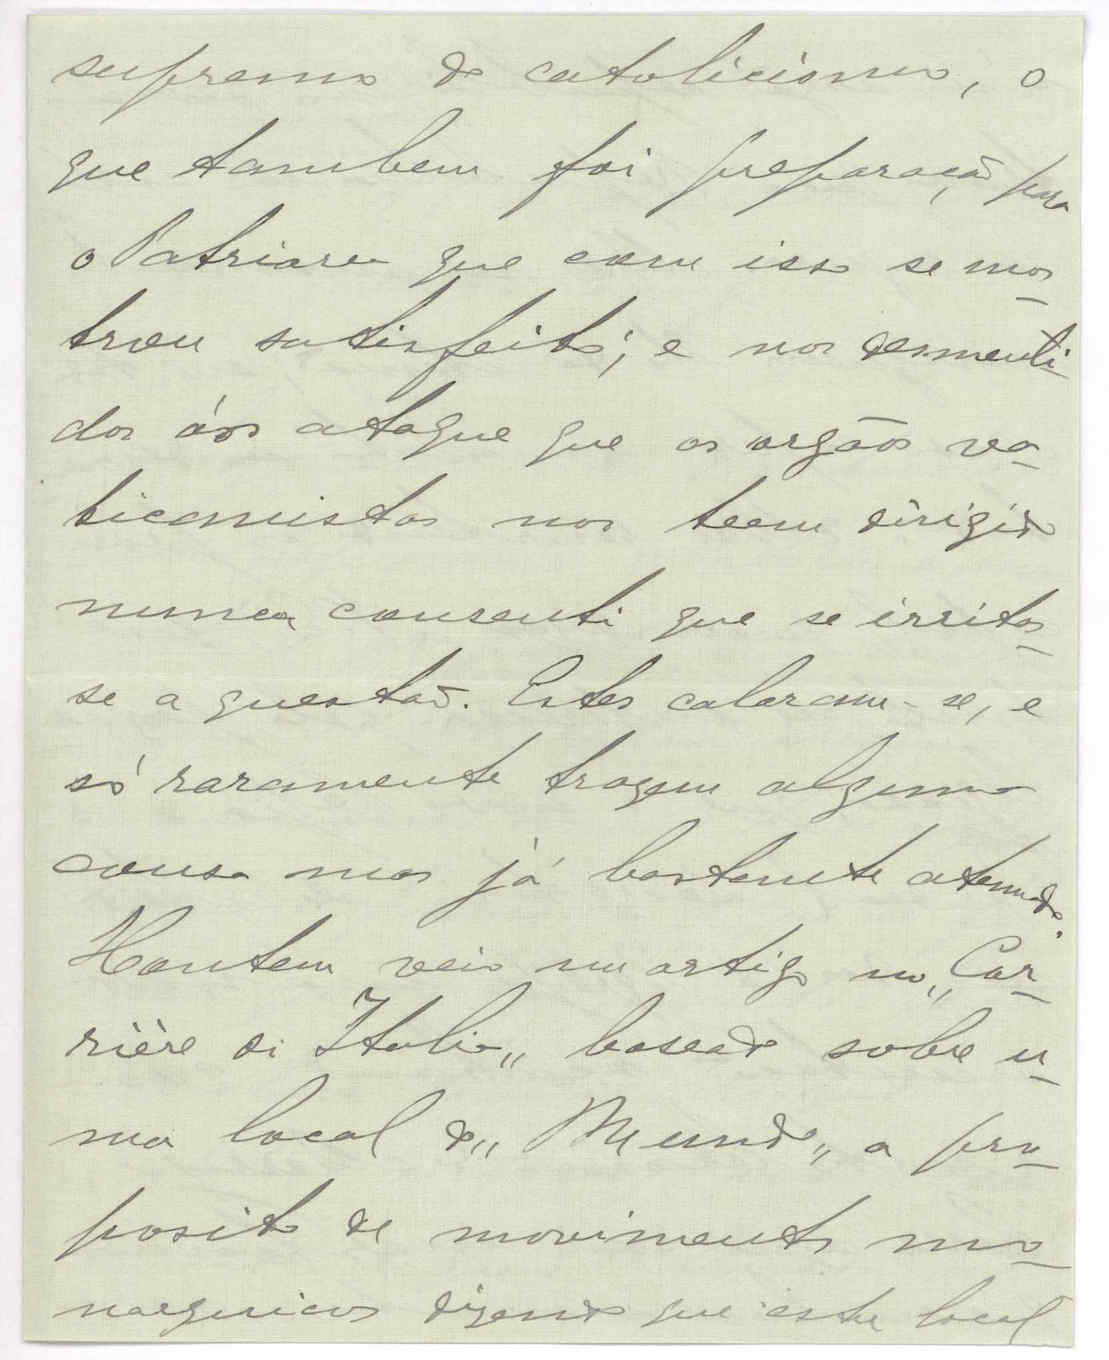 supremo do catolicismo, o
que tambem foi preparação para
o Patriarca que com isso se mos-
trou satisfeito; e nos desmenti-
dos áos ataque que os orgãos va-
ticanistas nos teem dirigido
nunca consenti que se irritas-
se a questão. Estes calaram-se, e
só raramente trazem alguma
cousa mas já bastante atenuada.
Hontem veio um artigo no „Cor-
rière di Italia„ baseado sobre u-
ma local do „Mundo„ a pro-
posito de movimentos mo-
narquicos dizendo que esta local